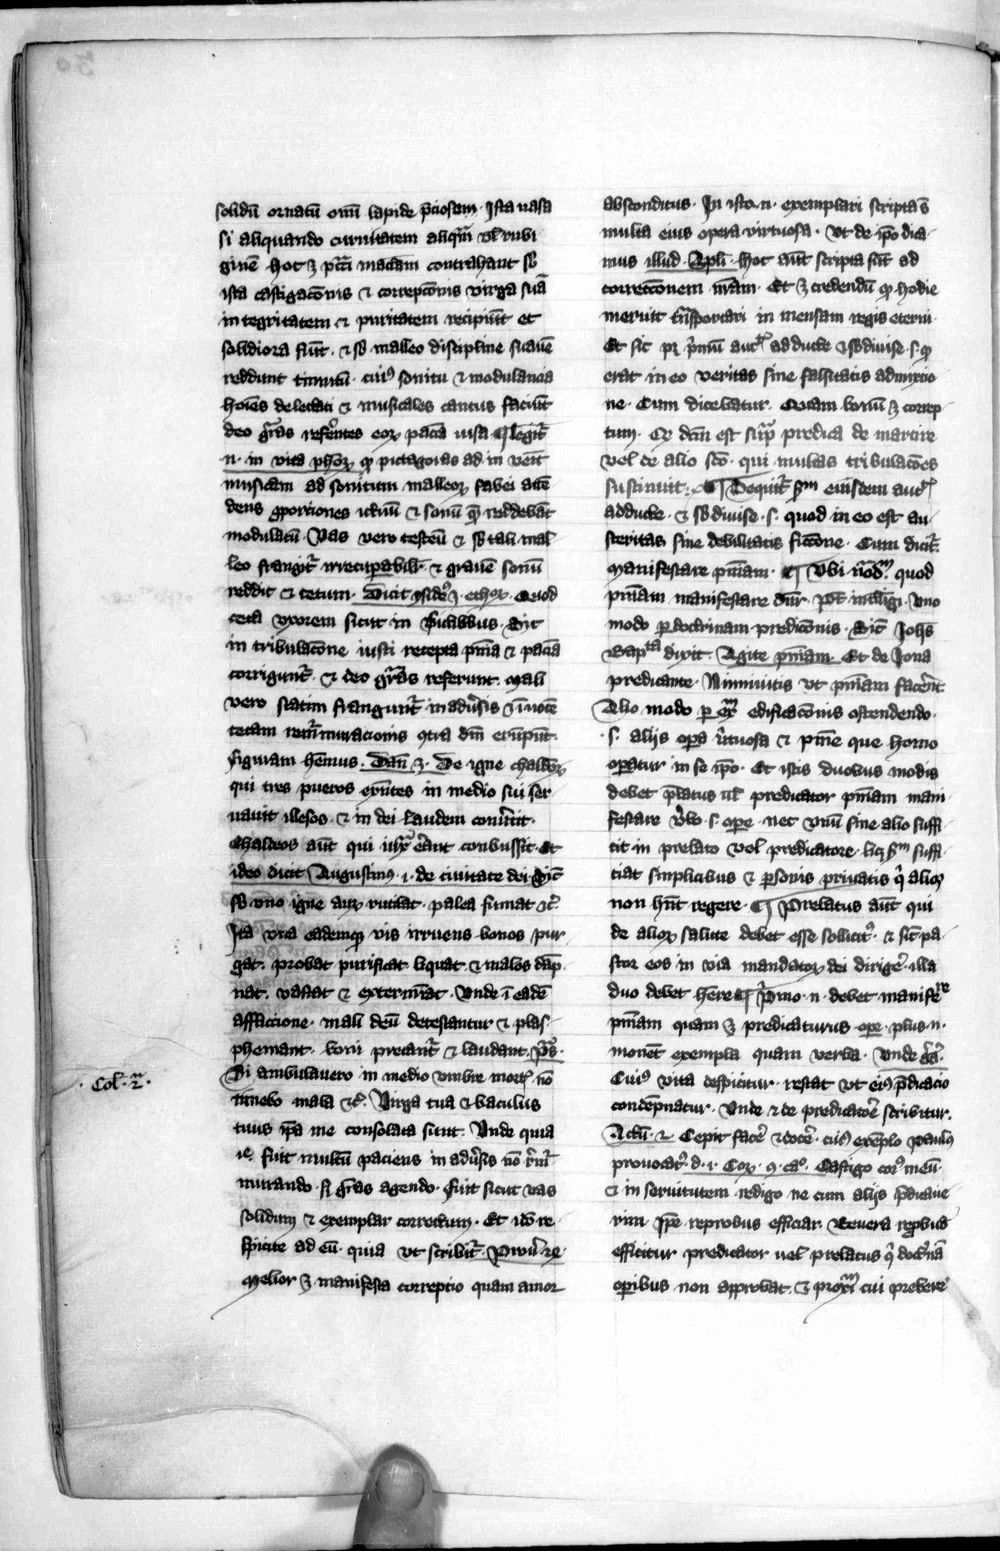 solidū ornatū omī lapide p̄ciosam. Ista uasa
si aliquando curuitatem aliqm̄ vl̄ rubi
ginē hoc ꝫ pcc̄i maclam contrahant sb̄
ista castigac̄onis ⁊ correpc̄onis virga suā
integritatem ⁊ puritatem recipiūt et
solidiora fiūt. ⁊ sb̄ malleo discipline suauē
reddunt tinnitū. cuiꝰ sonitu ⁊ modulancia
hoīes delectati ⁊ musicales cantus faciūt
deo gr̄as refer̄entes eoꝝ pacīa uisa ¶ legit̄
n. in vita ph̄oꝝ ꝙ pictagoras ad in venit
musicam ad sonitum malleoꝝ fabri attē
dens ꝓporciones ictuū ⁊ sonū quē reddebāt
modulatū. Vas vero testeū ⁊ sb̄ tali mal
leo frangit̄ irrecuꝑabilit̄ ⁊ grauē sonū
reddit ⁊ tetum. Dicit ethoꝝ. Quod
ceca vxorem sicut in fictilibus. Sic
in tribulac̄one iusti recepta pn̄ia ⁊ pacīa
corrigunt̄. ⁊ deo gr̄as referunt. Mali
vero statim frangunt̄ in aduer̄sis ⁊ in vocē
tetam remurmuracionis ꝯtra dm̄ erūpūt.
figuram hēmus. Dan̄ 3. De igne chaldeoꝝ
qui tres pueros exn̄tes in medio sui ser
uauit illesos. ⁊ in dei laudem conuer̄tit.
Chaldeos aūt qui iuxͣ er̄ant conbussit. Et
ideo dicit Augustinꝰ .1. de ciuitate dei. Sic̄
sb̄ vno igne auꝝ rutilat. palea fumat ⁊c̄.
Ita vna eademqꝫ vis irruens bonos pur
gat. probat purificat liquat. ⁊ malos dāp
nat. vastat ⁊ extermīat. Vnde ī eadē
affliccione. mali deū detestantur ⁊ blas
phemant. boni precant̄ ⁊ laudant. pˢ̄.
Si ambulauero in medio vmbre mortꝭ nō
timebo mala ⁊c̄. Virga tua ⁊ baculus
tuus ip̄a me consolata sunt. Vnde quia
iͤ. fuit multū paciens in aduer̄sis nō rem̄
murando. sꝫ gr̄as agendo. fuit sicut vas
solidum ⁊ exemplar correctum. Et ideo re
spicite ad eū. quia vt scribit̄. Prouer̄. 27
Melior ꝫ manifesta correptio quam amor
. Col. 2ᵃ.
absconditus. In isto .n. exemplari scripta sūt
multa eius opera virtuosa. Vt de ip̄o dica
mus illud. Apl̄i. hoc aūt scripta sūt ad
correcc̄onem nr̄am. Et ꝫ credendū ꝙ hodie
meruit trn̄sportari in mensam regis eterni
Et sic pꝫ p̄mū auctꝭ adducte ⁊ sb̄diuise. s. ꝙ
erat in eo veritas sine falsitatis admixtio
ne. Cum dicebatur. Coram bonū ꝫ correp
tum. Qꝛ dcm̄ est supͣ predica de martire
vel de alio sc̄o. qui multas tribulac̄oes
sustinuit. ¶ Sequit̄ 2ᵐ eiusdem auctꝭ
adducte. ⁊ sb̄diuise .s. quod in eo est au
steritas sine debilitatis ficc̄one. Cum dicit̄.
Manifestare pn̄iam. ¶ Vbi nōdꝫ quod
pn̄iam manifestare dupl̄r. pōt intelligi. Vno
modo ꝑ doctrinam predicc̄onis. Sic̄ Joh̄s
Baptᵗᵃ dixit. Agite pn̄iam. Et de Jona
predicante. Niniuitis vt pn̄iam facer̄ent
Alio modo ꝑ exᵐ edificac̄onis ostendendo.
.s. alijs oꝑa virtuosa ⁊ pn̄ie que homo
oꝑatur in se ip̄o. Et istis duobus modis
debet p̄latus ul̄ predicator pn̄iam mani
festare ver̄bo .s. oꝑe. nec vnū sine alio suffi
cit in prelato vel predicatore. licꝫ 2ᵐ suffi
ciat simplicibus ⁊ ꝑsonis priuatis qͥ alios
non hn̄t regere. ¶ Prelatus aūt qui
de alioꝝ salute debet esse sollicitꝰ. ⁊ sic̄ pa
stor eos in via mandatoꝝ dei dirigere. illa
duo debet hēre ¶ Pͥmo .n. debet manifestare
pn̄iam quam ꝫ predicaturus oꝑe. plus .n.
monēt exempla quam verba. Vnde gg̃.
Cuiꝰ vita despicitur. restat vt eiꝰ p̄dicacio
condēpnatur. Vnde ⁊ de predicatoe scribitur.
Actū. 2 Cepit facer̄ ⁊ docer̄. cuiꝰ exēplo paulus
prouocatꝰ. d. 1. Coꝝ. 9. caº. Castigo corꝰ meū.
⁊ in seruitutem redigo ne cum alijs p̄dicaue
rim ip̄e reprobus efficiar. Reuera rep̄bus
efficitur predicator uel prelatus qͥ doctͥnā
oꝑibus non approbat. ⁊ proxīᵐ cui prebere